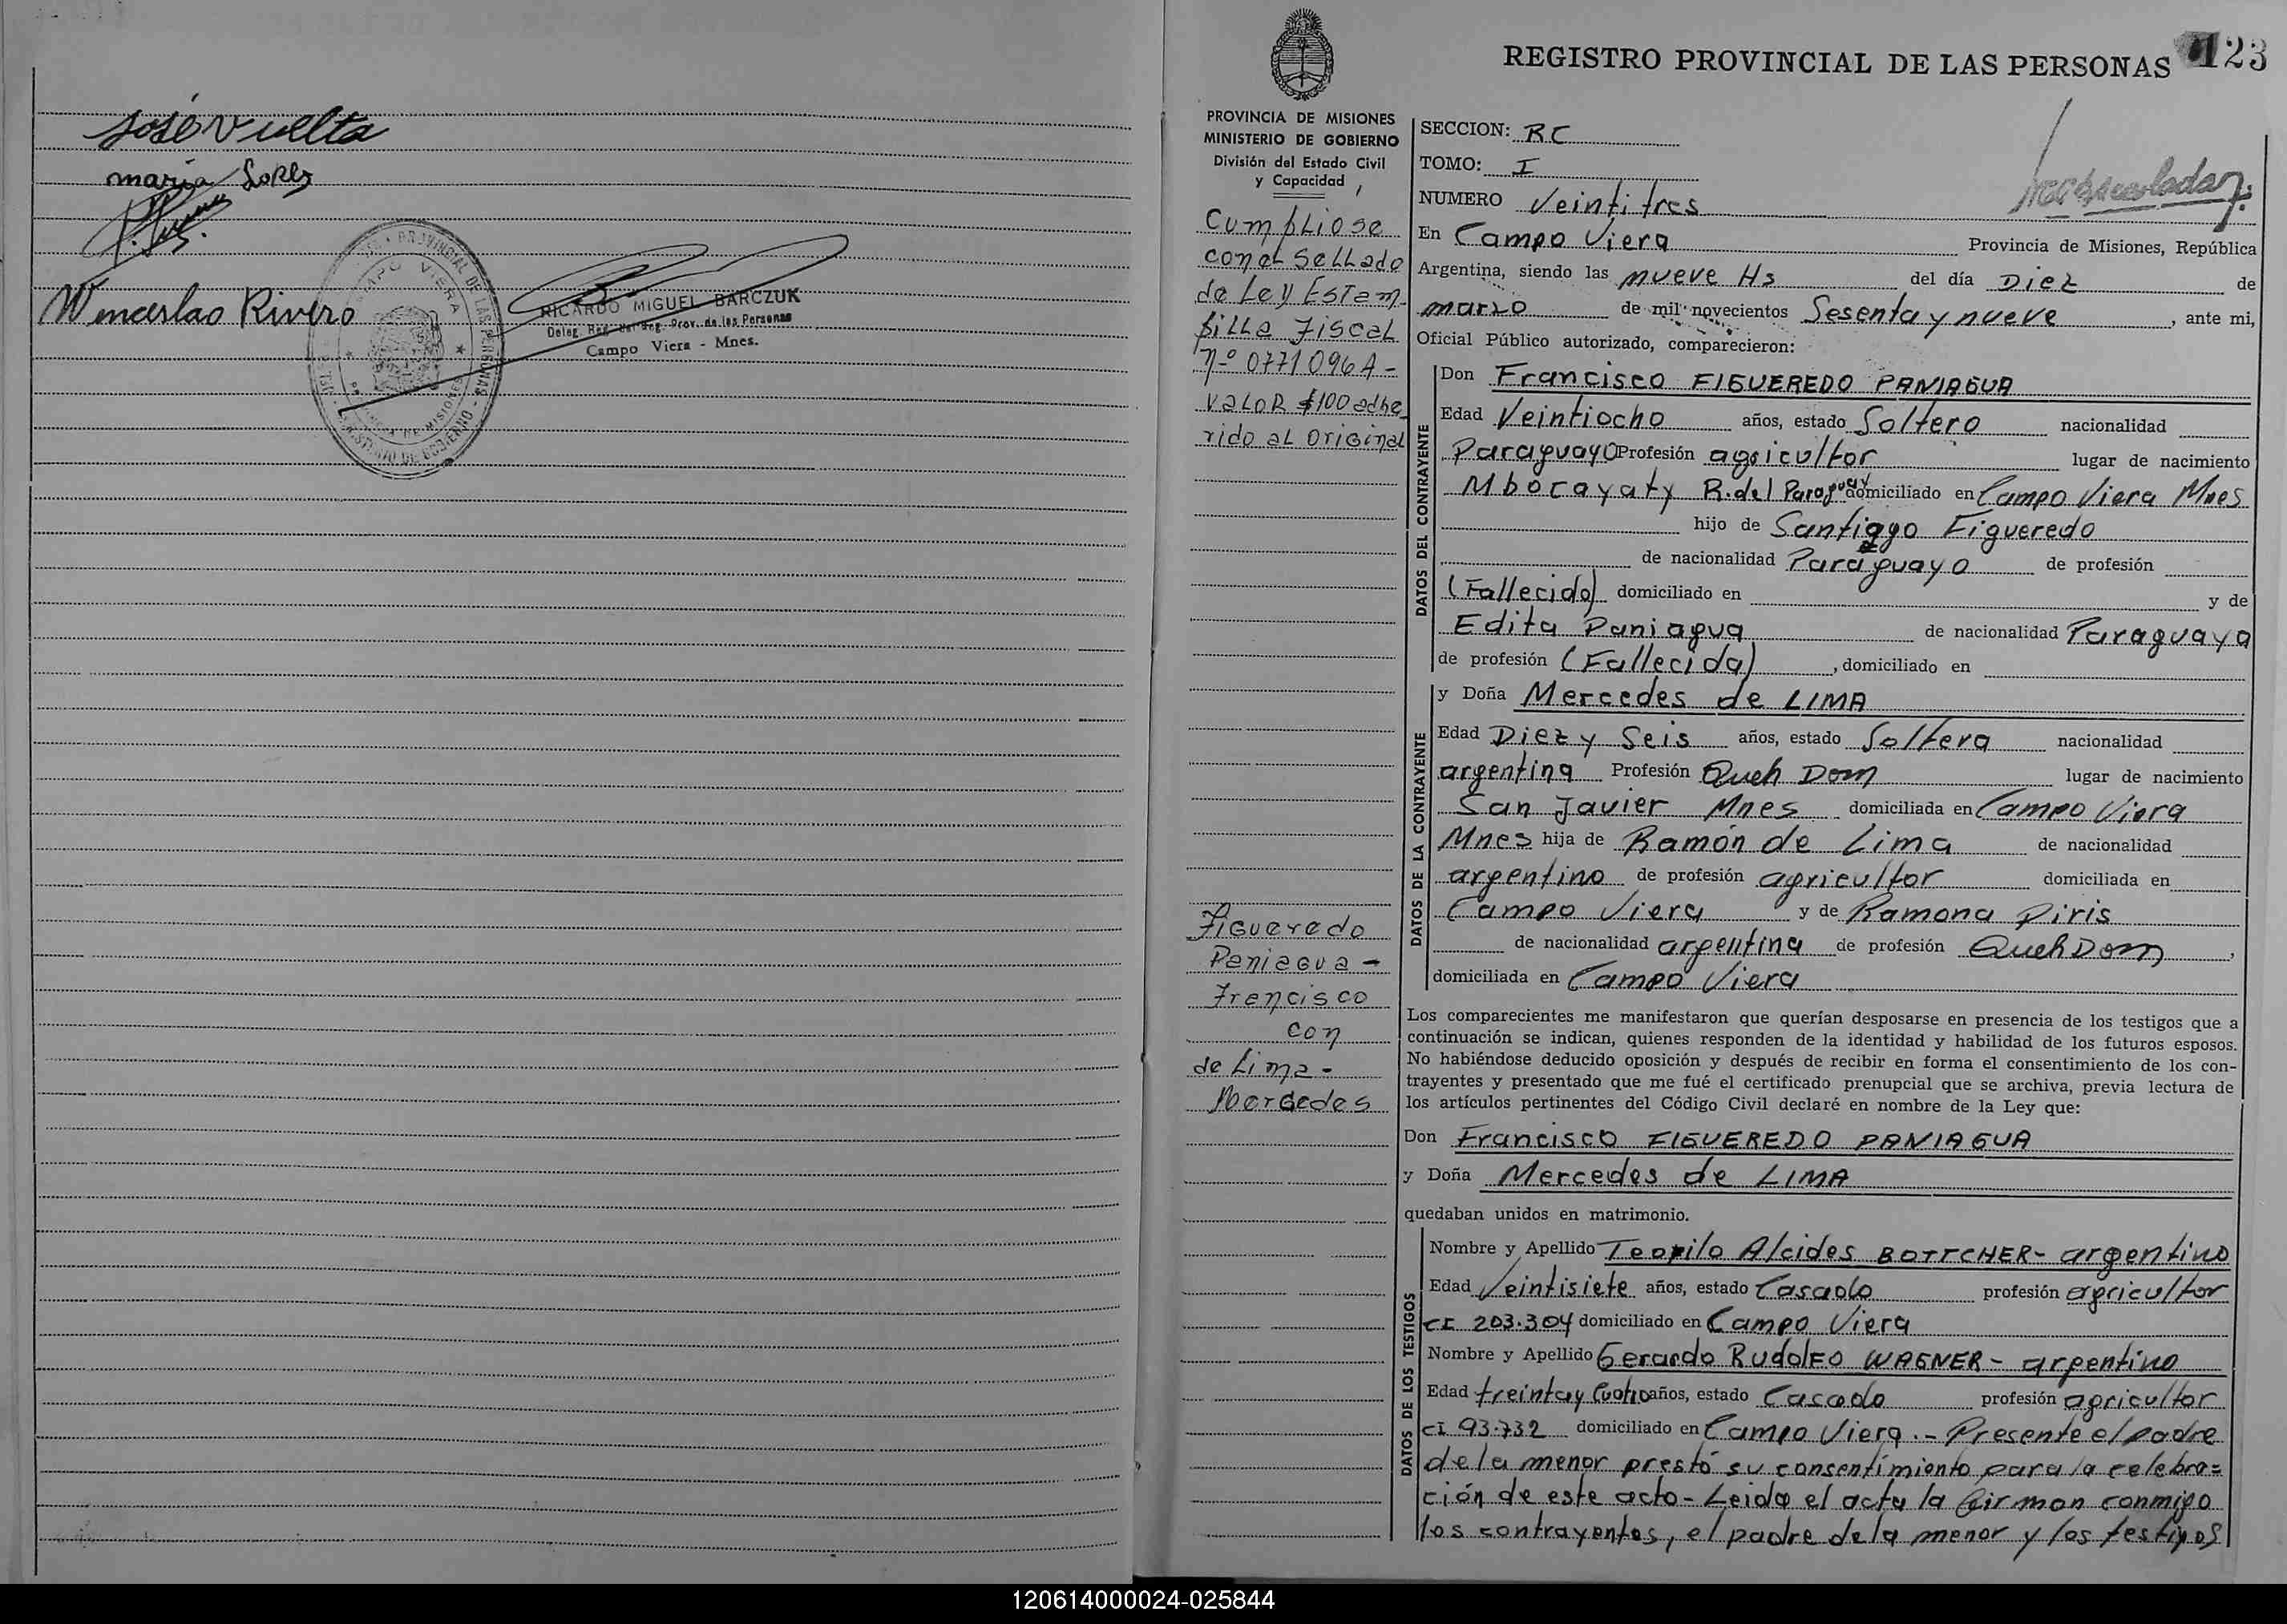 José Vuelta
maria Lopez
Wenceslao Rivero
RICARDO MIGUEL BARCZUK
Campo Viera - Mnes.
CAMPO VIERA
REGISTRO PROVINCIAL DE LAS PERSONAS
123
PROVINCIA DE MISIONES
MINISTERIO DE GOBIERNO
División del Estado Civil
y Capacidad
Cumpliose
con el Sellado
de Ley Estam-
pilla Fiscal
nº 0771096A-
valor $100 adhe
rido al original
Figueredo
Paniagua -
Francisco
con
de Lima -
Mercedes
SECCION: RC
TOMO: I
NUMERO Veintitres
En Campo Viera Provincia de Misiones, República
Argentina, siendo las nueve Hs del día Diez de
marzo de mil novecientos Sesenta y nueve, ante mi,
Oficial Público autorizado, comparecieron:
DATOS DEL CONTRAYENTE
Don Francisco FIGUEREDO PANIAGUA
Edad Veintiocho años, estado Soltero nacionalidad
Paraguayo Profesión agricultor lugar de nacimiento
Mbocayaty R. del Paraguay domiciliado en Campo Viera Mnes
hijo de Santiago Figueredo
de nacionalidad Paraguayo de profesión
(Fallecido) domiciliado en y de
Edita Paniagua de nacionalidad Paraguaya
de profesión (Fallecida), domiciliado en
DATOS DE LA CONTRAYENTE
y Doña Mercedes de LIMA
Edad Diez y Seis años, estado Soltera nacionalidad
argentina Profesión Queh Dom lugar de nacimiento
San Javier Mnes domiciliada en Campo Viera
Mnes hija de Ramón de Lima de nacionalidad
argentino de profesión agricultor domiciliada en
Campo Viera y de Ramona Piris
de nacionalidad argentina de profesión Queh Dom,
domiciliada en Campo Viera
Los comparecientes me manifestaron que querían desposarse en presencia de los testigos que a
continuación se indican, quienes responden de la identidad y habilidad de los futuros esposos.
No habiéndose deducido oposición y después de recibir en forma el consentimiento de los con-
trayentes y presentado que me fué el certificado prenupcial que se archiva, previa lectura de
los artículos pertinentes del Código Civil declaré en nombre de la Ley que:
Don Francisco FIGUEREDO PANIAGUA
y Doña Mercedes de LIMA
quedaban unidos en matrimonio.
DATOS DE LOS TESTIGOS
Nombre y Apellido Teofilo Alcides BOTTCHER- argentino
Edad Veintisiete años, estado Casado profesión agricultor
CI 203.304 domiciliado en Campo Viera
Nombre y Apellido Gerardo Rudolfo WAGNER - argentino
Edad treinta y Cuatro años, estado Casado profesión agricultor
CI 93.732 domiciliado en Campo Viera .- Presente el padre
de la menor prestó su consentimiento para la celebra=
ción de este acto - Leida el acta la firman conmigo
los contrayentes, el padre de la menor y los testigos
120614000024-025844